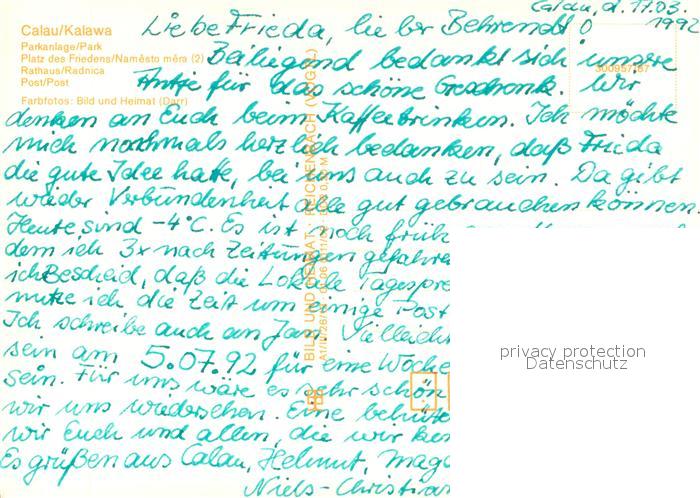 Calau, d. 17.03.
1992
Calau/Kalawa
Parkanlage/Park
Platz des Friedens/Naměsto měra (2)
Rathaus/Radnica
Post/Post
Farbfotos: Bild und Heimat (Darr)
Liebe Frieda, lieber Behrendt
Beiliegend bedankt sich unsere
Antje für das schöne Geschenk. Wir
denken an Euch beim Kaffeetrinken. Ich möchte
mich nochmals herzlich bedanken, daß Frieda
die gute Idee hatte, bei uns auch zu sein. Da gibt
wieder Verbundenheit alle gut gebrauchen können.
Heute sind -4°C. Es ist noch früh
dem ich 3x nach Zeitungen
ich Bescheid, daß die Lokale
ich die Zeit um einige Post
Ich schreibe auch an Jan
sein am 5.07.92 für eine Woche
sein. Für uns wäre es sehr schön
wir uns wiedersehen. Eine
wir Euch und allen, die wir
Es grüßen aus Calau, Helmut,
BILD UND HEIMAT REICHENBACH (VOGTL)
privacy protection
Datenschutz